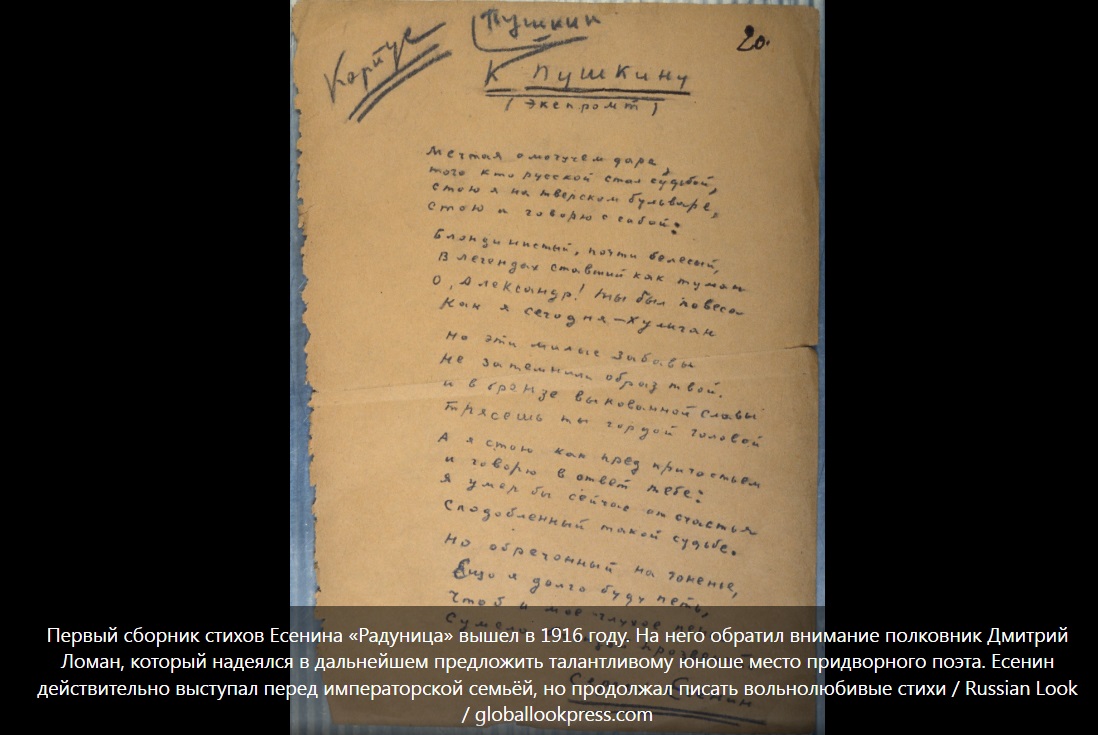 Корпус
Пушкин
20.
К Пушкину
(Экспромт)
Мечтая о могучем даре,
того кто русской стал судьбой,
стою я на тверском бульваре,
стою и говорю с собой:
Блондинистый, почти белесый,
В легендах ставший как туман
О, Александр! Ты был повеса
Как я сегодня – хулиган
Но эти милые забавы
Не затемнили образ твой.
и в бронзе выкованной славы
Трясешь ты гордой головой
А я стою как пред причастьем
и говорю в ответ тебе:
Я умер бы сейчас от счастья
Сподобленный такой судьбе.
Но обречонный на гоненье,
Ещо я долго буду петь,
Чтоб и мое
Сергей Есенин
Первый сборник стихов Есенина «Радуница» вышел в 1916 году. На него обратил внимание полковник Дмитрий
Ломан, который надеялся в дальнейшем предложить талантливому юноше место придворного поэта. Есенин
действительно выступал перед императорской семьёй, но продолжал писать вольнолюбивые стихи / Russian Look
/ globallookpress.com